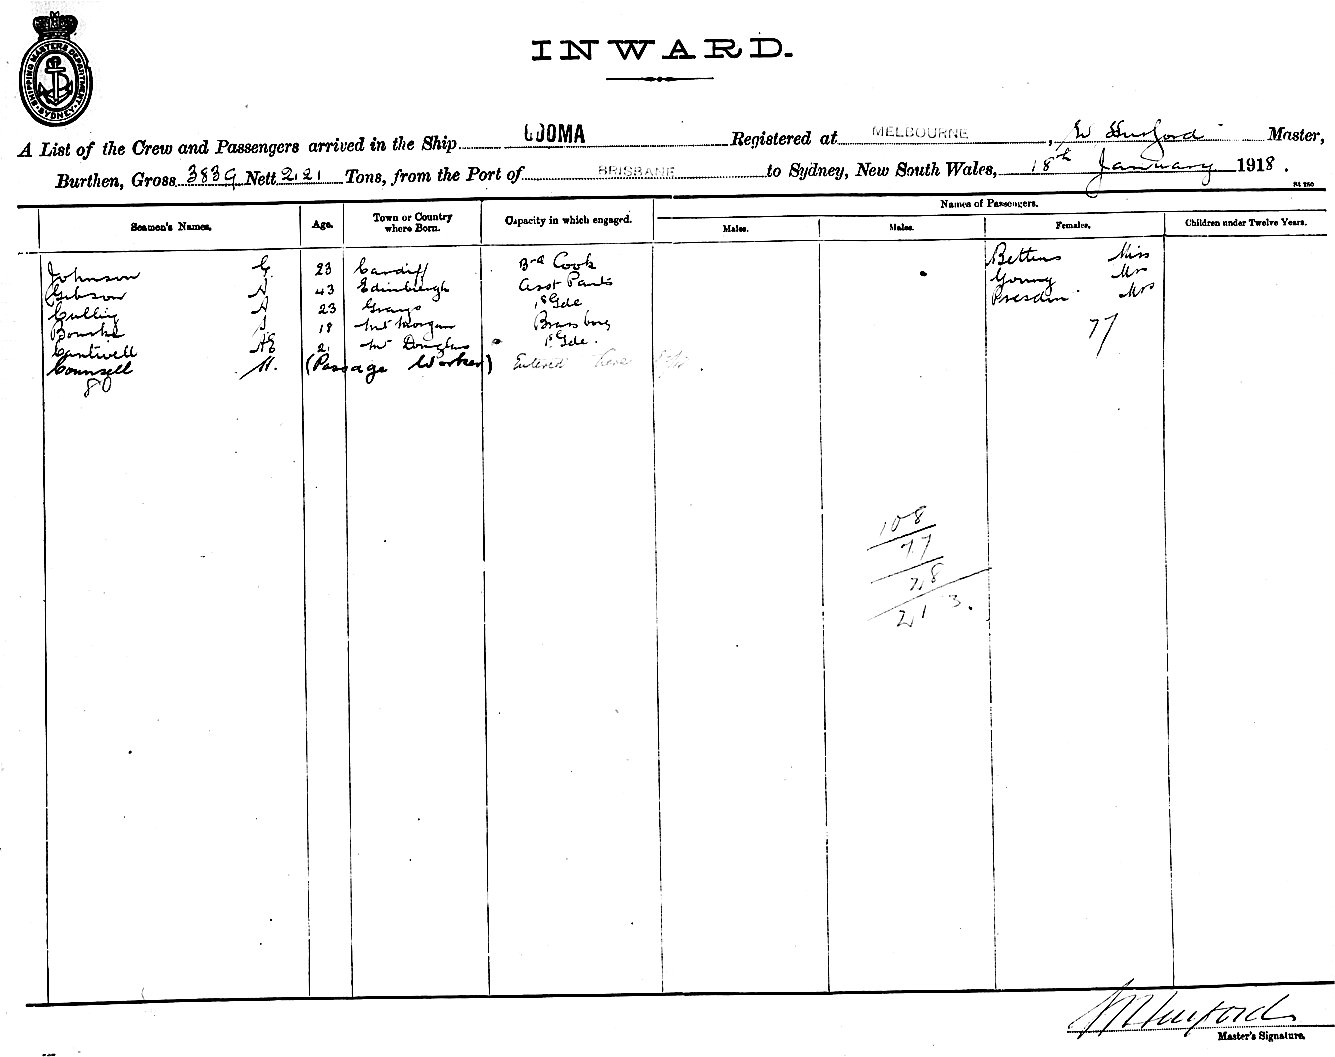 SHIPPING MASTERS DEPARTMENT SYDNEY
INWARD.
A List of the Crew and Passengers arrived in the Ship COOMA Registered at MELBOURNE, Master,
Burthen, Gross 3839 Nett 2121 Tons, from the Port of BRISBANE to Sydney, New South Wales, 18th January 1918.
Names of Passengers.
Seamen's Names. Age. Town or Country where Born. Capacity in which engaged. Males. Males. Females. Children under Twelve Years.
Johnson G. 23 Cardiff 3rd Cook Bettens Miss
Gibson A 43 Edinburgh Asst Pants Young Mrs
Culling A 23 Grays 1st Gde Mrs
Bourke J 18 Mt Morgan 77
Cantwell AE 21 Mt Douglas 1st Gde.
Counsell H. (Passage Worker) Entered here
80
108
77
28
213.
Master's Signature.